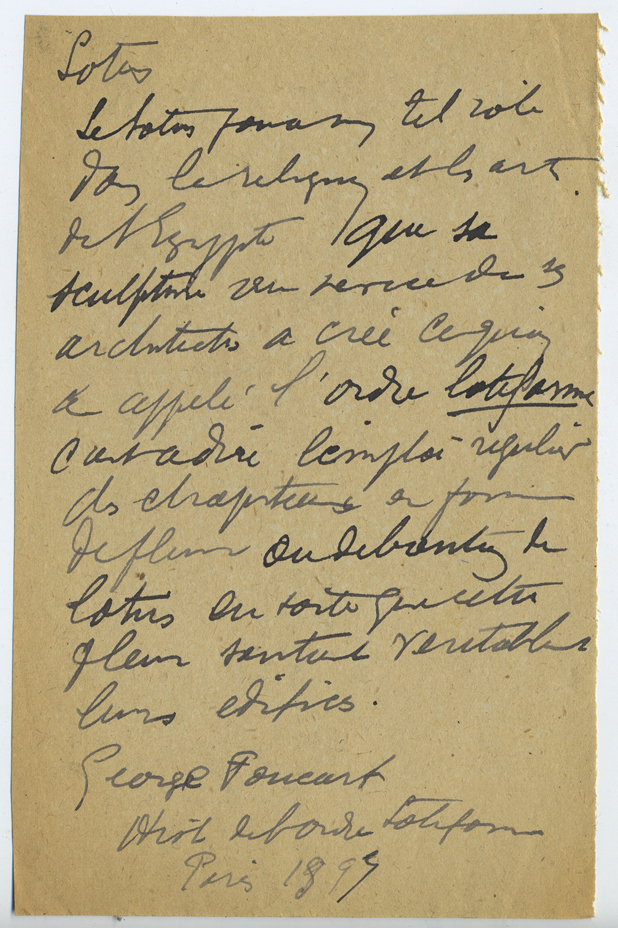 Lotus
Le Lotus joua un tel role
dans la religion et les arts
de l'Egypte que sa
sculpture au service de ses
architectes a créé ce qu'on
a appelé l'ordre lotiforme
c'est a dire l'emploi régulier
des chapiteaux en forme
de fleur ou de bouton de
lotus en sorte que cette
fleur soutient veritablement
leurs edifices.
George Foucart
Hist de l'ordre Lotiforme
Paris 1897